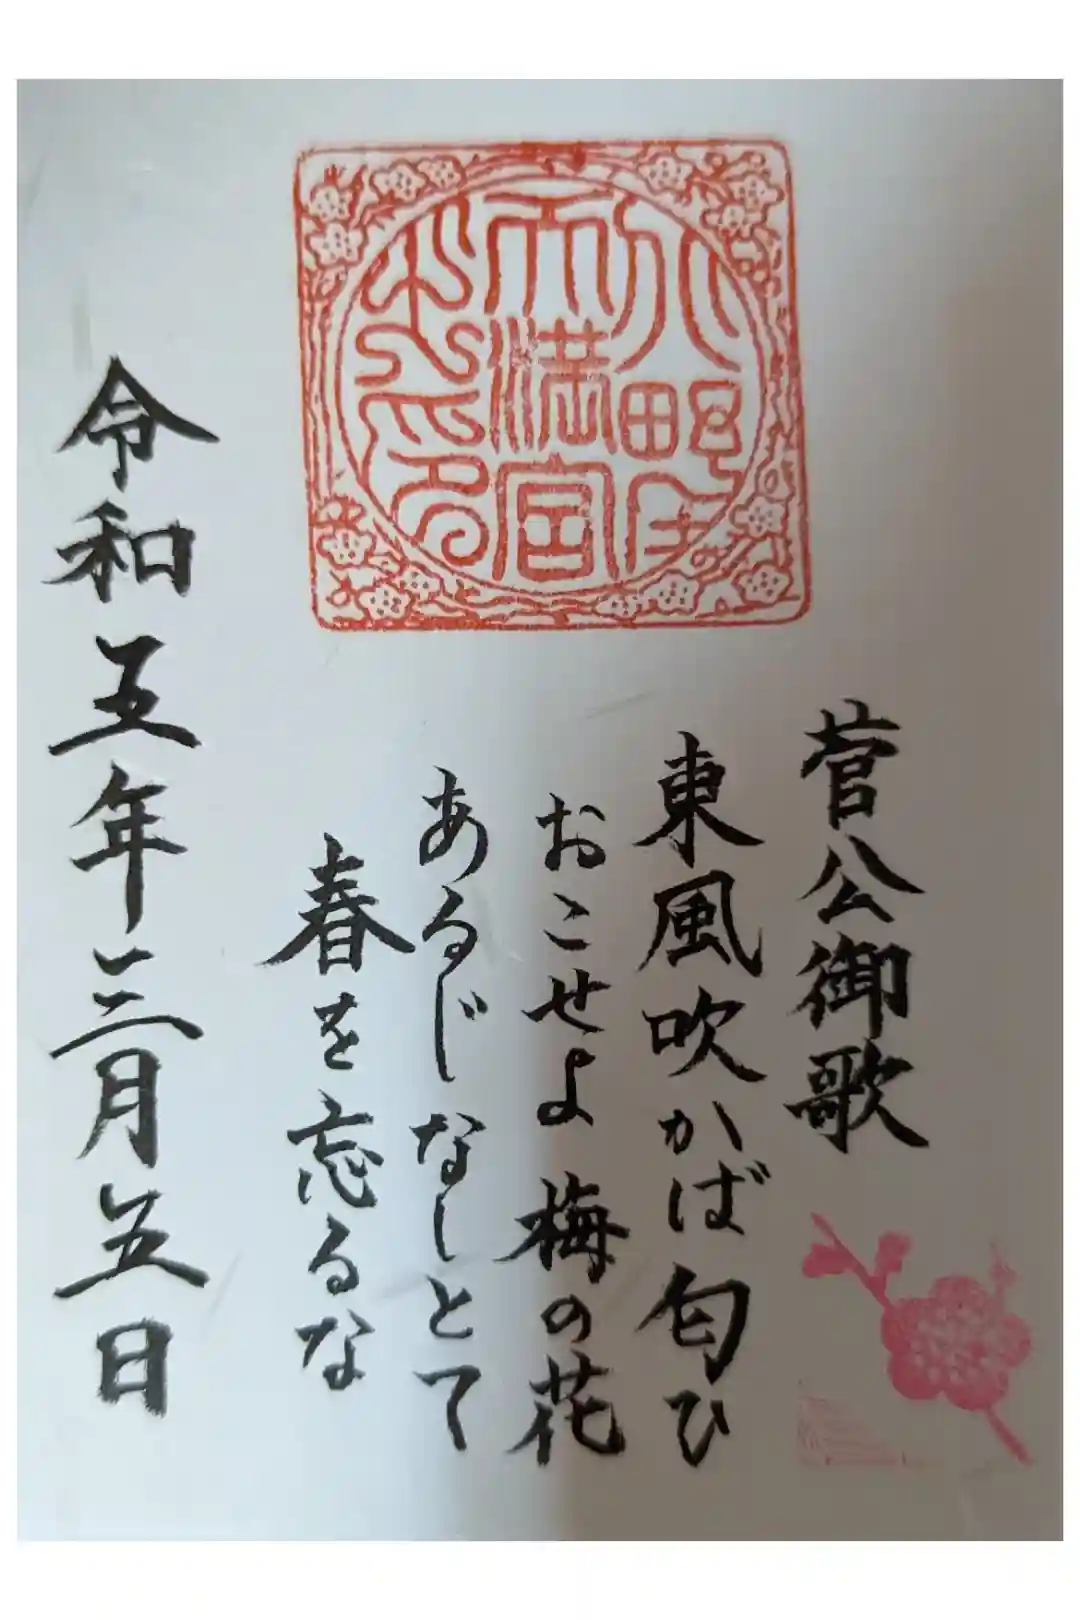 天満宮
之印
菅公御歌
東風吹かば匂ひ
おこせよ 梅の花
あるじなしとて
春を忘るな
令和五年三月五日